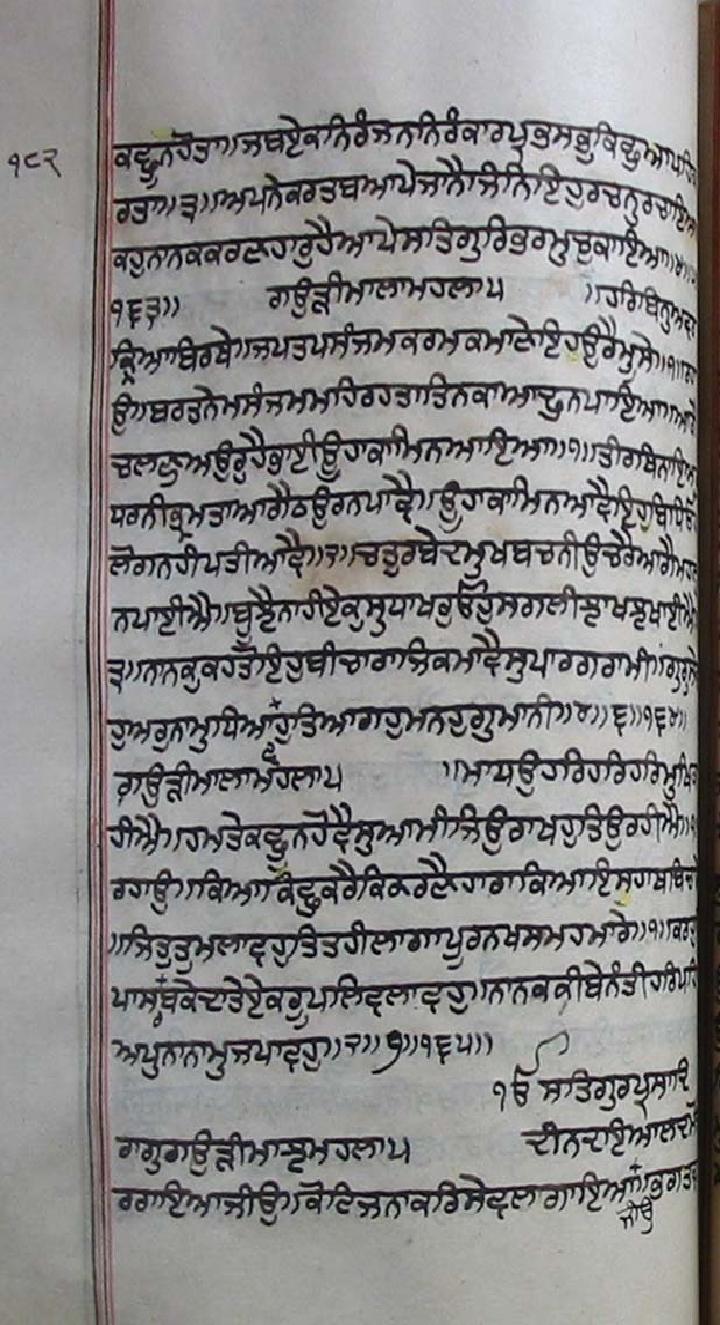 ੧੮੨
ਕਛੂਨਹੋਤਾ॥ਜਬਏਕਨਿਰੰਜਨਨਿਰੰਕਾਰਪ੍ਰਭਸਭੁਕਿਛੁਆਪਹਿ
ਰਤਾ॥੩॥ਅਪਨੇਕਰਤਬਆਪੇਜਾਨੈਜਿਨਿਇਹੁਰਚਨੁਰਚਾਇਆ
ਕਹੁਨਾਨਕਕਰਣਹਾਰੁਹੈਆਪੇਸਤਿਗੁਰਿਭਰਮੁਚੁਕਾਇਆ॥੪॥
੧੬੩॥ ਗਉੜੀਮਾਲਾਮਹਲਾ੫ ॥ਹਰਿਬਿਨੁਅਵਰ
ਕ੍ਰਿਆਬਿਰਥੇ॥ਜਪਤਪਸੰਜਮਕਰਮਕਮਾਣੇਇਹਓਰੈਮੂਸੇ॥੧॥ਰਹਾ
ਉ॥ਬਰਤਨੇਮਸੰਜਮਮਹਿਰਹਤਾਤਿਨਕਾਆਢੁਨਪਾਇਆ॥ਆਗੈ
ਚਲਣੁਅਉਰੁਹੈਭਾਈਊਹਾਕਾਮਿਨਆਇਆ॥੧॥ਤੀਰਥਿਨਾਇਅ
ਧਰਨੀਭ੍ਰਮਤਾਆਗੈਠਉਰਨਪਾਵੈ॥ਊਹਾਕਾਮਿਨਆਵੈਇਹਬਿਧਿਓ
ਲੋਗਨਹੀਪਤੀਆਵੈ॥੨॥ਚਤੁਰਬੇਦਮੁਖਬਚਨੀਉਚਰੈਆਗੈਮਹਲੁ
ਨਪਾਈਐ॥ਬੂਝੈਨਾਹੀਏਕੁਸੁਧਾਖਰੁਓਹੁਸਗਲੀਝਾਖਝਖਾਈਐ
੩॥ਨਾਨਕੁਕਹਤੋਇਹੁਬੀਚਾਰਾਜਿਕਮਾਵੈਸੁਪਾਰਗਰਾਮੀ॥ਗੁਰੁਸੇ
ਹੁਅਰੁਨਾਮੁਧਿਆਵਹੁਤਿਆਗਹੁਮਨਹੁਗੁਮਾਨੀ॥੪॥੬॥੧੬੪॥
ਗਉੜੀਮਾਲਾਮਹਲਾ੫ ॥ਮਾਧਉਹਰਿਹਰਿਹਰਿਮੁਖਿਕ
ਹੀਐ॥ਹਮਤੇਕਛੂਨਹੋਵੈਸੁਆਮੀਜਿਉਰਾਖਹੁਤਿਉਰਹੀਐ॥੧
ਰਹਾਉ॥ਕਿਆਕਿਛੁਕਰੈਕਿਕਰਣੈਹਾਰਾਕਿਆਇਸੁਹਾਥਬਿਚਾ
॥ਜਿਤੁਤੁਮਲਾਵਹੁਤਿਤਹੀਲਾਗਾਪੂਰਨਖਸਮਹਮਾਰੇ॥੧॥ਕਰਹੁ
ਪਾਸਰਬਕੇਦਾਤੇਏਕਰੂਪਲਿਵਲਾਵਹੁ॥ਨਾਨਕਕੀਬੇਨੰਤੀਹਰਿਪਹਿ
ਅਪੁਨਾਨਾਮੁਜਪਾਵਹੁ॥੨॥੭॥੧੬੫॥
ੴ ਸਤਿਗੁਰਪ੍ਰਸਾਦਿ
ਰਾਗੁਗਉੜੀਮਾਝਮਹਲਾ੫ ਦੀਨਦਇਆਲਦਮੋ
ਰਰਾਇਆਜੀਉ॥ਕੋਟਿਜਨਾਕਰਿਸੇਵਲਗਾਇਆਜੀਉ॥ਭਗਤਵ